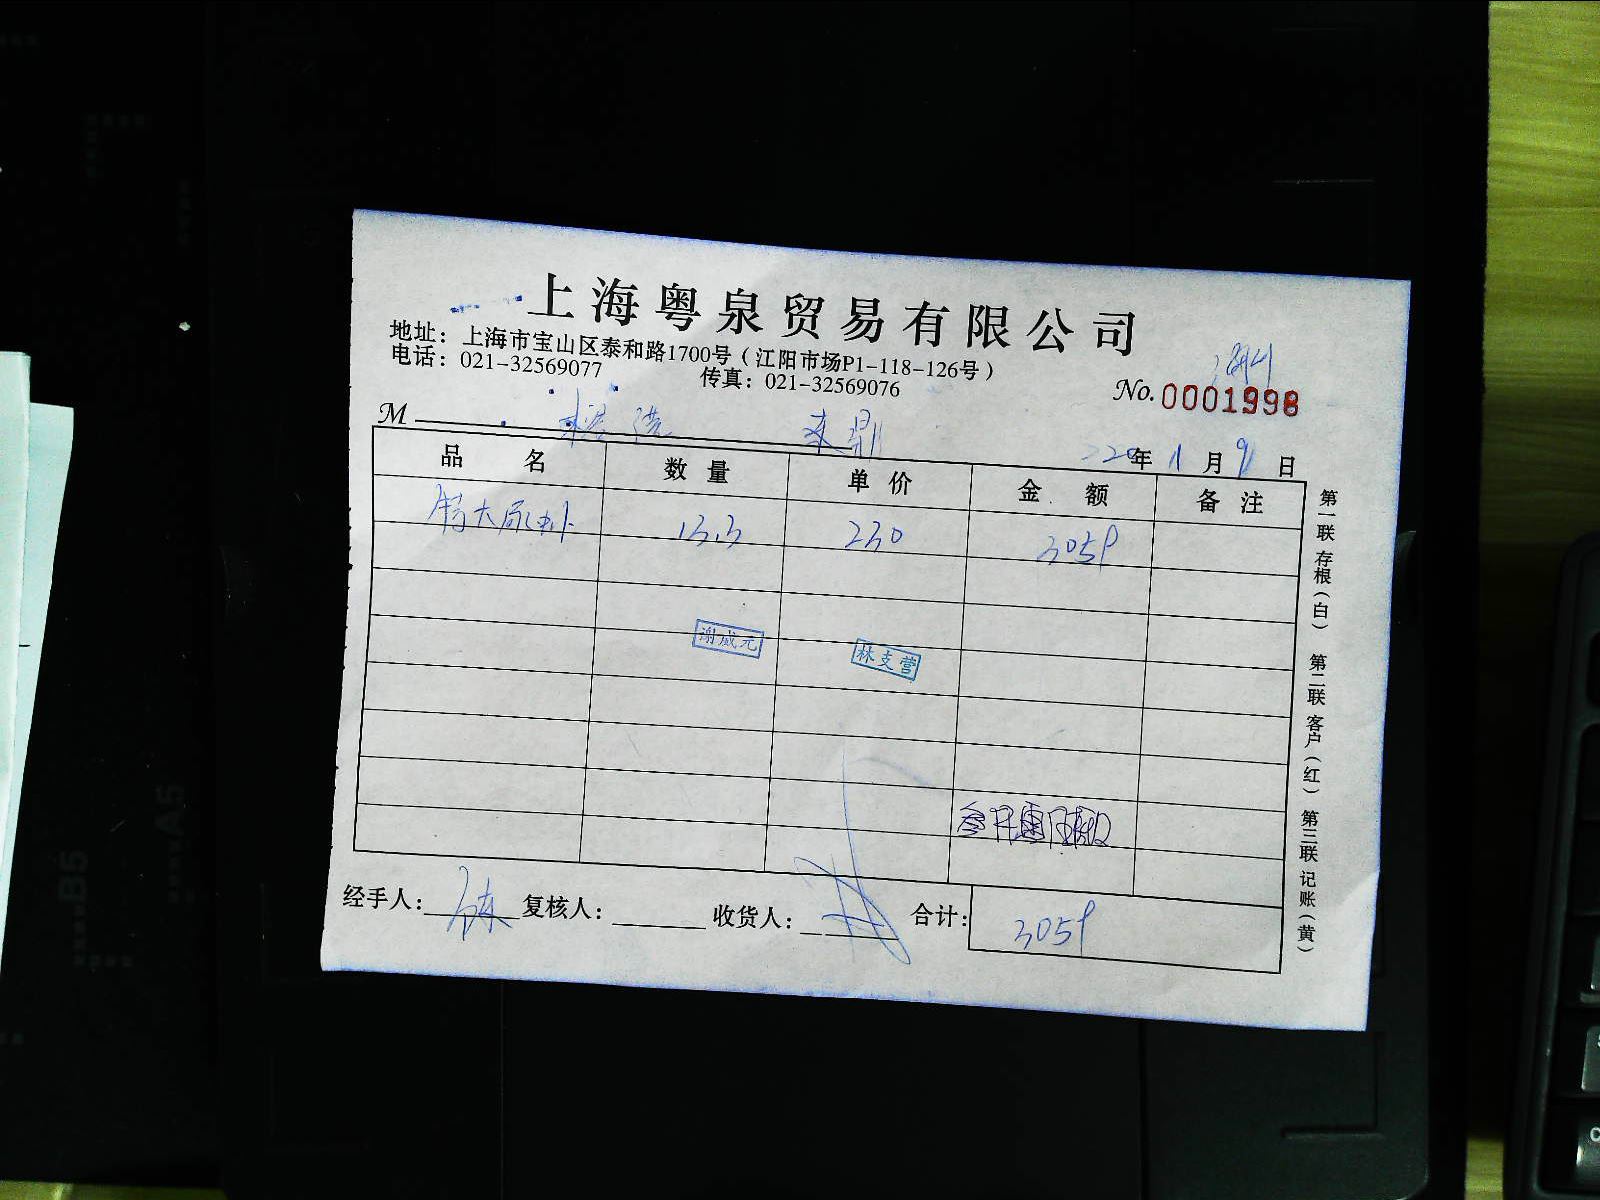 上海粤泉贸易有限公司
地址：上海市宝山区泰和路1700号（江阳市场P1-118-126号）
电话：021-32569077 传真：021-32569076
No. 0001998
M
年 11 月 9 日
品 名 数 量 单 价 金 额 备 注
特大 13.3 230 3059
谢威元 林支营
经手人： 复核人： 收货人： 合计： 3059
第一联 存根（白） 第二联 客户（红） 第三联 记账（黄）
B5
A5